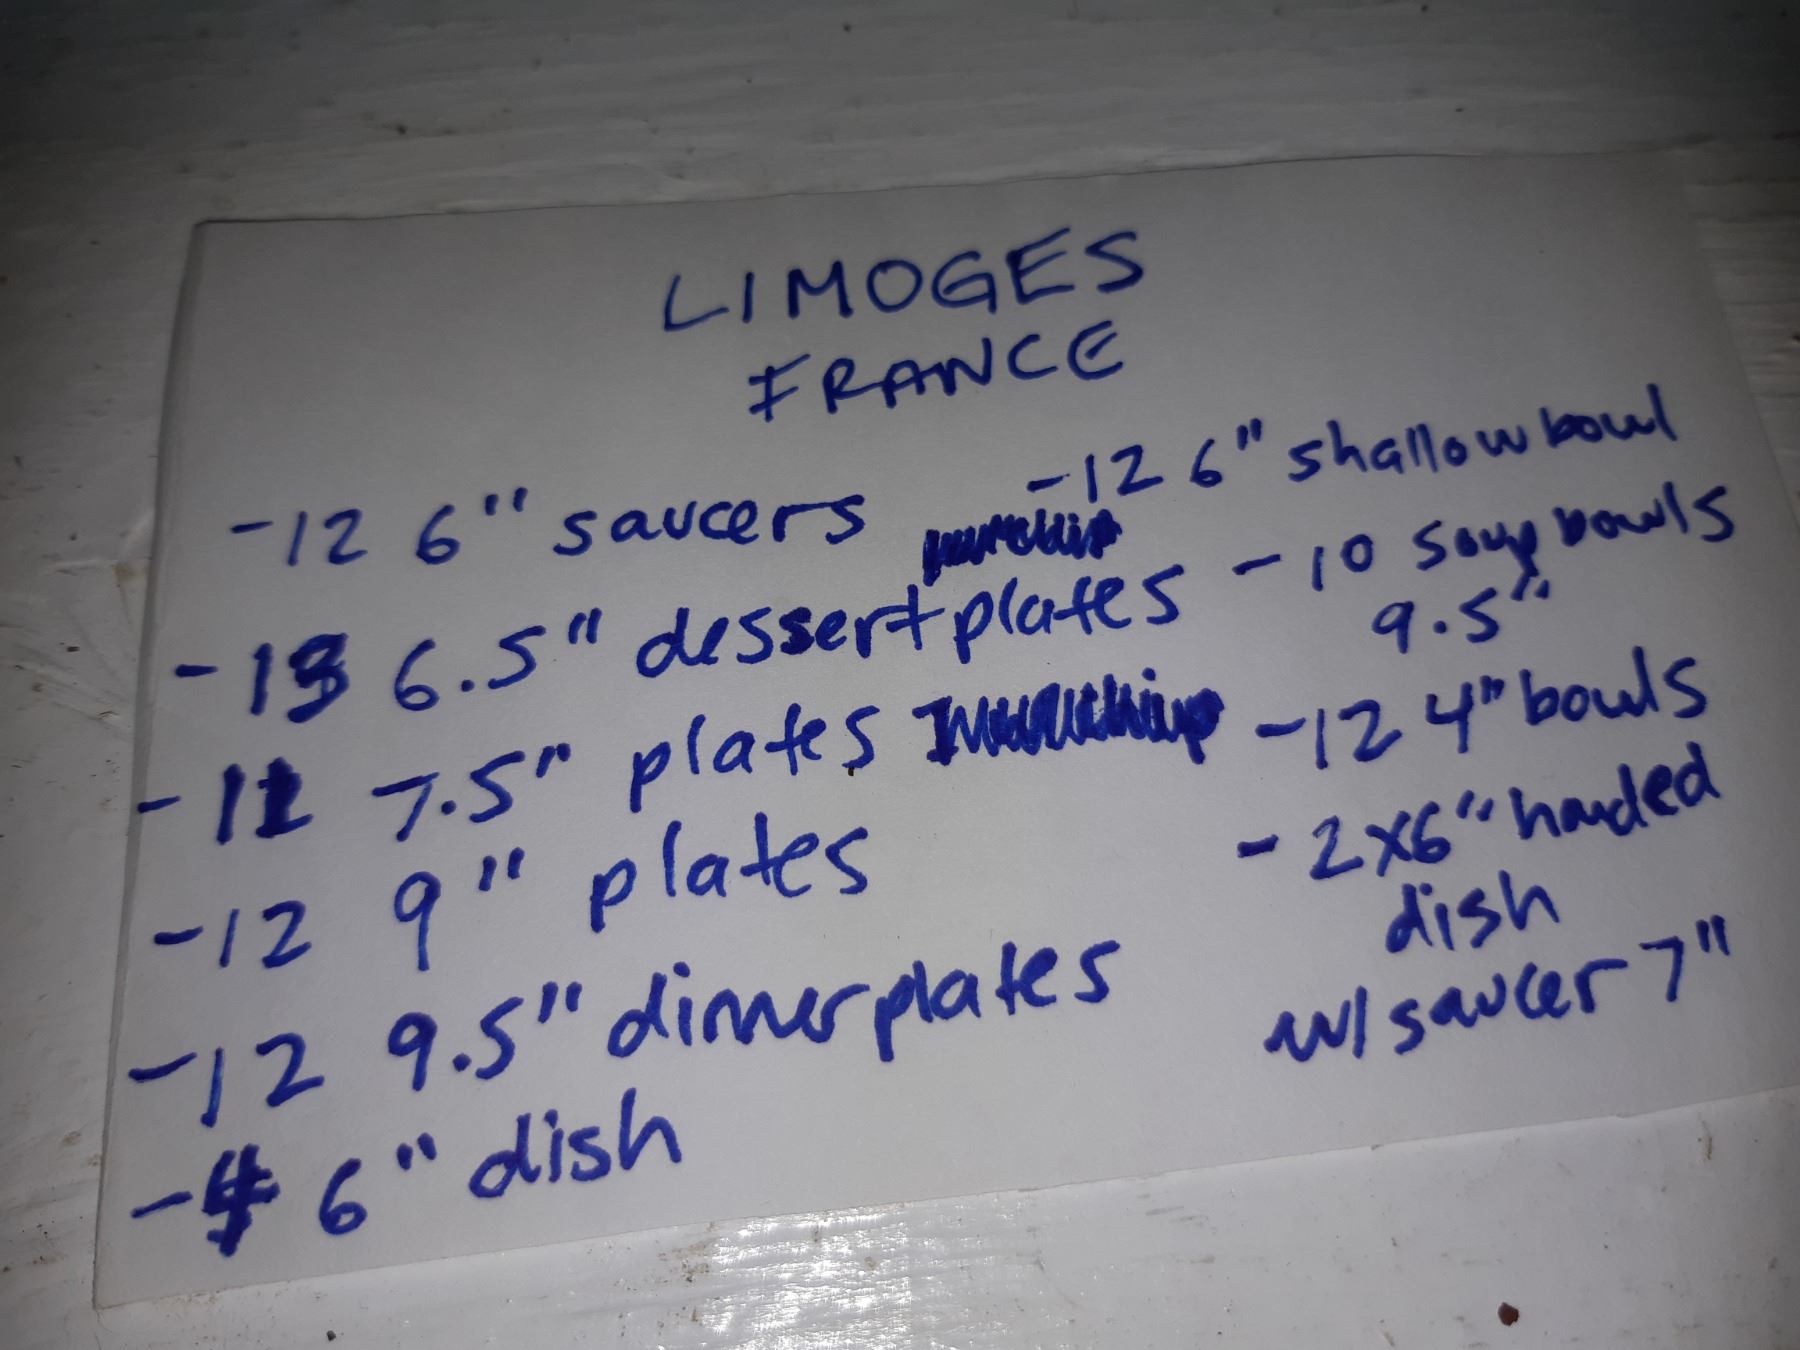 LIMOGES
FRANCE
-12 6" saucers
-13 6.5" dessert plates
-11 7.5" plates
-12 9" plates
-12 9.5" dinner plates
-4 6" dish
-12 6" shallow bowl
-10 soup bowls
9.5"
-12 4" bowls
-2x6" handed
dish
w/ saucer 7"